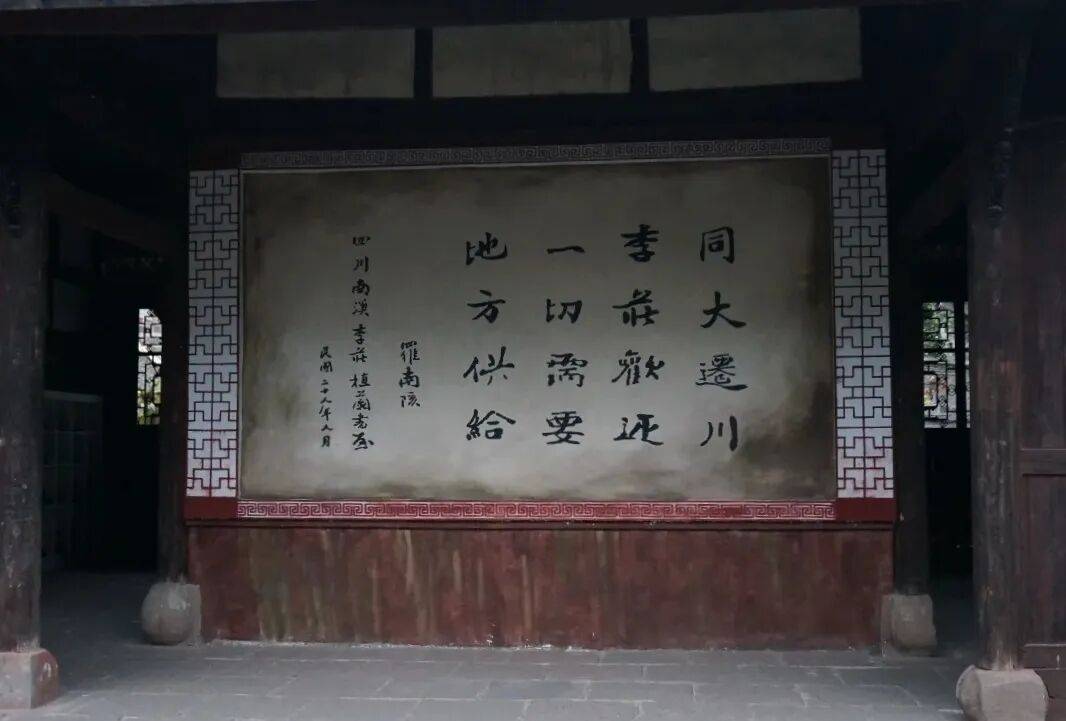 同大遷川
李莊歡迎
一切需要
地方供給
羅南陔
四川南溪李莊植蘭書屋
民國二十九年八月